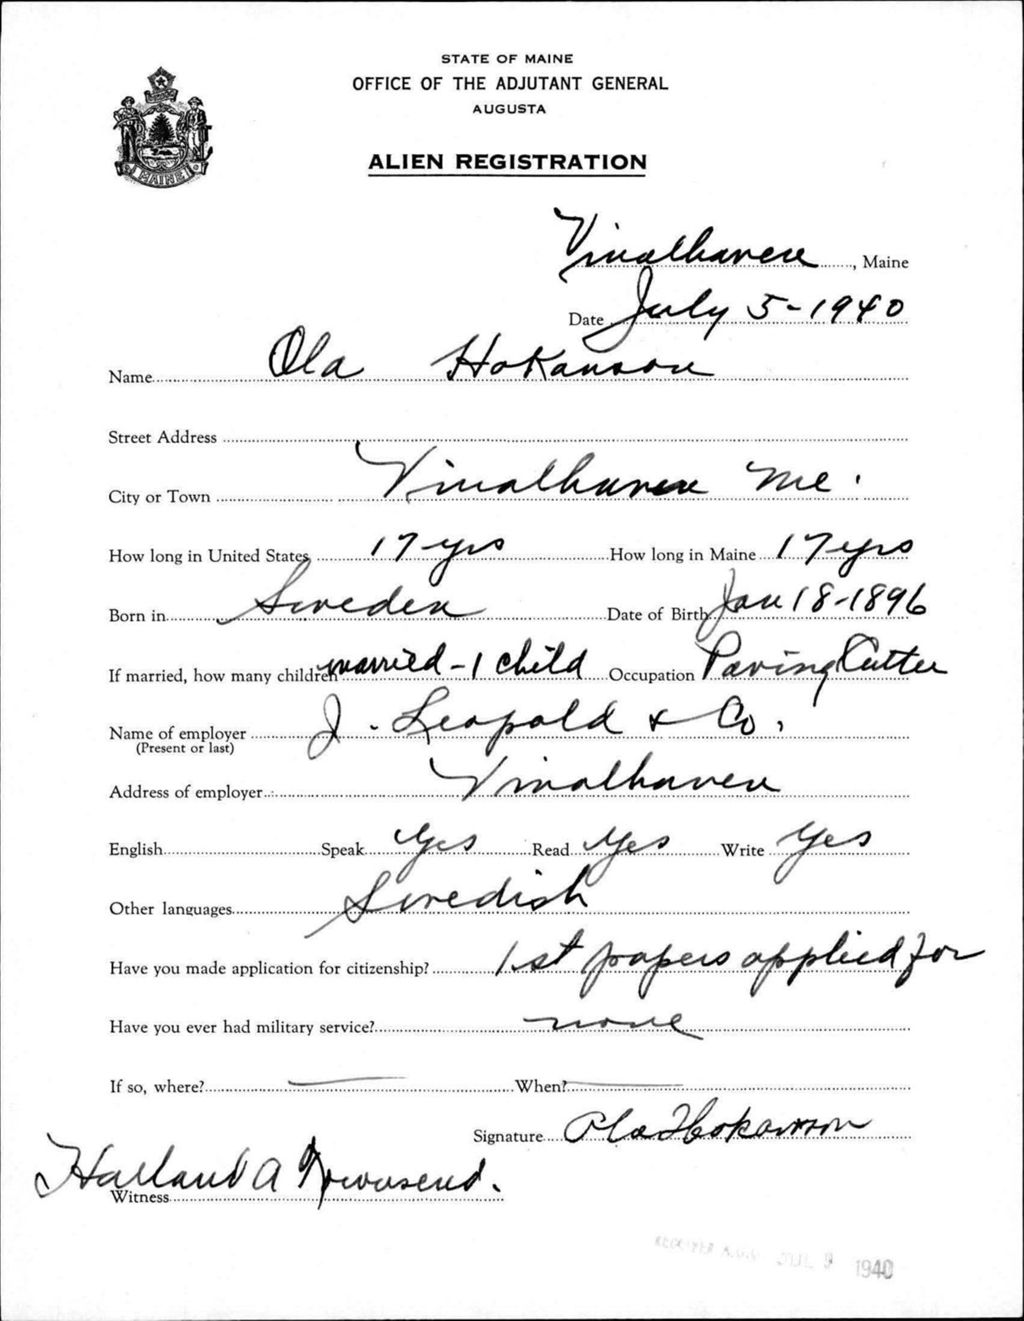 STATE OF MAINE
OFFICE OF THE ADJUTANT GENERAL
AUGUSTA
ALIEN REGISTRATION
MAINE
Vinalhaven, Maine
Date July 5-1940
Name Ola Hokanson
Street Address
City or Town Vinalhaven Me.
How long in United States 17 yrs How long in Maine 17 yrs
Born in Sweden Date of Birth Jan 18-1896
If married, how many children married - 1 child Occupation Paving Cutter
Name of employer J. Leopold & Co.
(Present or last)
Address of employer Vinalhaven
English Speak Yes Read Yes Write Yes
Other languages Swedish
Have you made application for citizenship? 1st papers applied for
Have you ever had military service? none
If so, where? — When? —
Signature Ola Hokanson
Witness Harland A Townsend.
JUL 9 1940